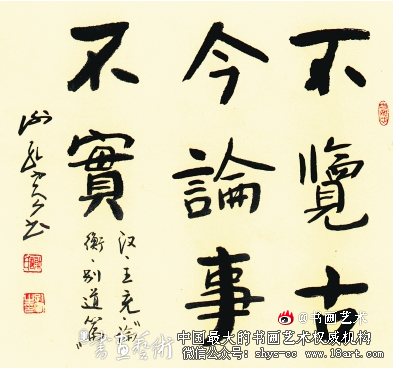 不覽古
今論事
不實
汉、王充《论
衡、别通篇
@书画艺术
書画藝術
中国最大的书画艺术权威机构
微信公众号：shys-cc www.18art.com